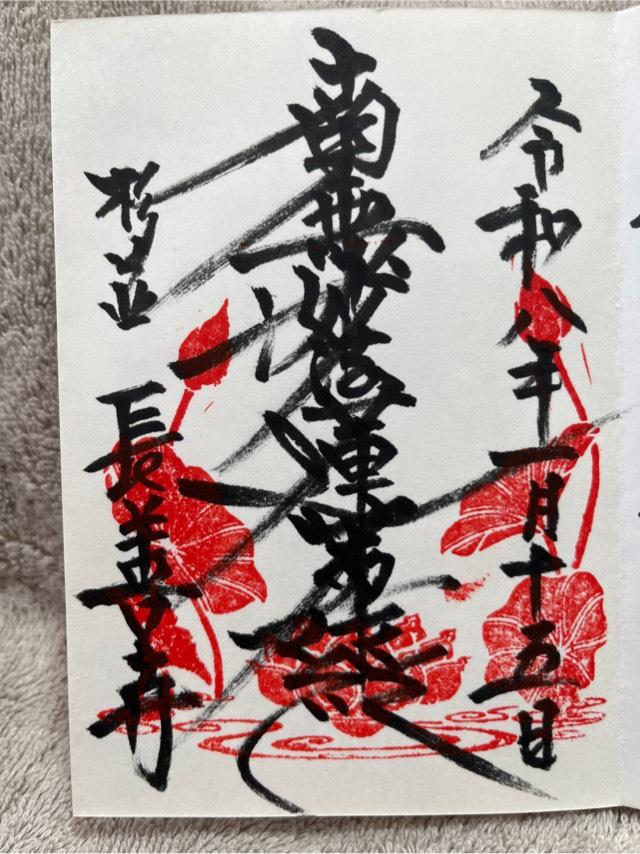 令和八年一月十五日
南無妙法蓮華経
杉並 長善寺